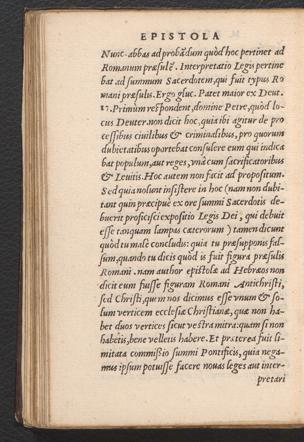 EPISTOLA
Nunc abbas ad probādum quòd hoc pertinet ad
Romanum præsulē. Interpretatio Legis pertine
bat ad summum Sacerdotem, qui fuit typus Ro
mani præsulis. Ergo &c. Patet maior ex Deut.
17. Primum respondent, domine Petre, quòd lo-
cus Deuter. non dicit hoc, quia ibi agitur de pro
cessibus ciuilibus & criminalibus, pro quorum
dubietatibus oportebat consulere eum qui indica
bat populum, aut reges, vnà cum sacrificatoribus
& Leuitis. Hoc autem non facit ad propositum.
Sed quia nolunt insistere in hoc (nam non dubi-
tant quin præcipuè ex ore summi Sacerdotis de-
buerit proficisci expositio Legis Dei, qui debuit
esse tanquam lampas cæterorum) tamen dicunt
quòd tu malè concludis: quia tu præsupponis fal-
sum, quando tu dicis quòd is fuit figura præsulis
Romani. nam author epistolæ ad Hebræos non
dicit eum fuisse figuram Romani Antichristi,
sed Christi, quem nos dicimus esse vnum & so-
lum verticem ecclesiæ Christianæ, quæ non ha-
bet duos vertices sicut vestra mitra: quam si non
habetis, bene velletis habere. Et præterea fuit li-
mitata commißio summi Pontificis, quia nega-
mus ipsum potuisse facere nouas leges aut inter-
pretari